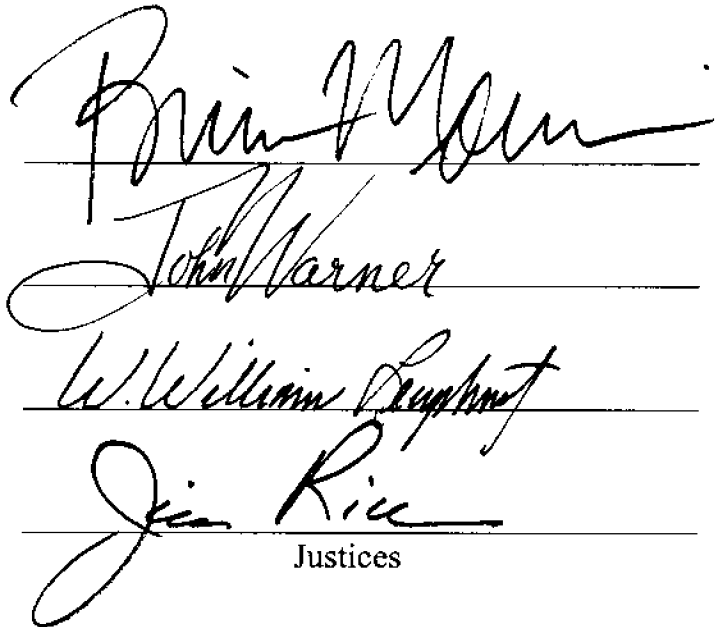 Brian Morris
John Warner
W. William Leaphart
Jim Rice
Justices